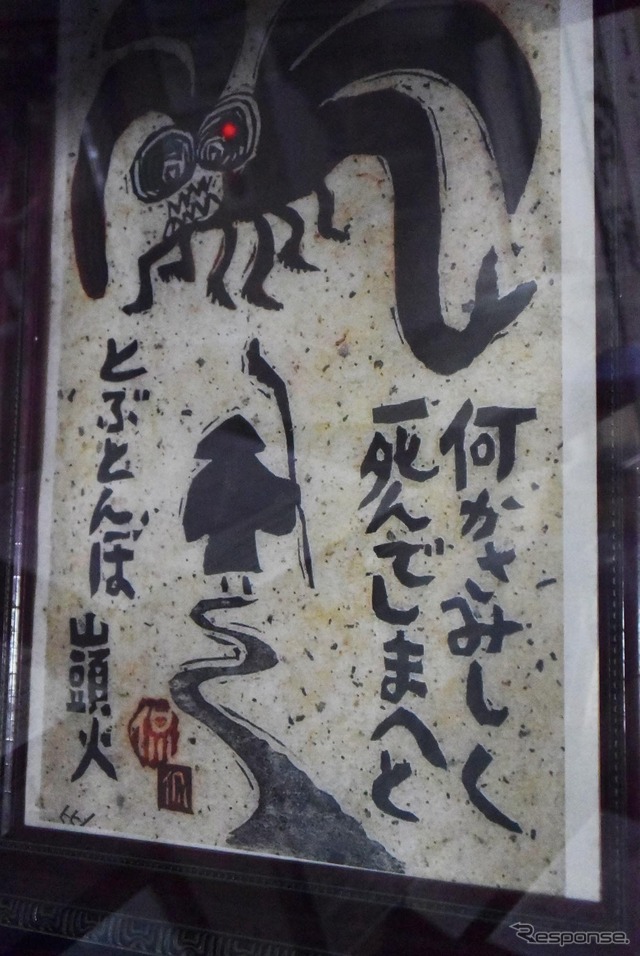 何かさみしく
死んでしまへと
とぶとんぼ
山頭火
Response.